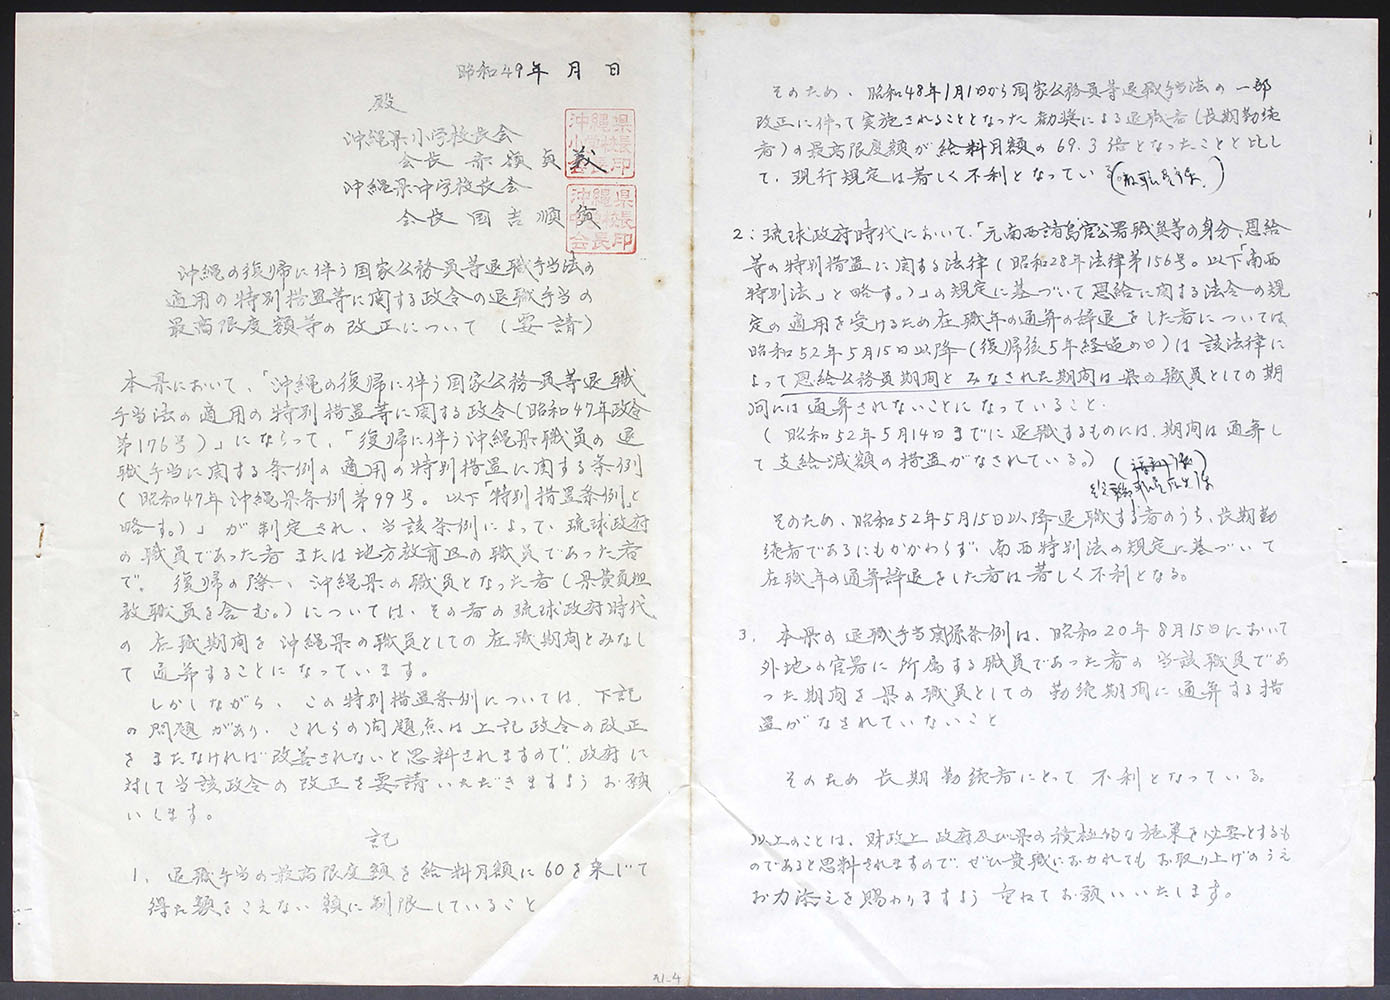 昭和49年 月 日
殿
沖縄県小学校長会
会長 赤嶺貞義
沖縄県中学校長会
会長 国吉順質
沖縄県
小学校長
会長印
沖縄県
中学校長
会長印
沖縄の復帰に伴う国家公務員等退職手当法の
適用の特別措置等に関する政令の退職手当の
最高限度額等の改正について(要請)
本県において、「沖縄の復帰に伴う国家公務員等退職
手当法の適用の特別措置等に関する政令(昭和47年政令
第176号)」にならって、「復帰に伴う沖縄県職員の退
職手当に関する条例の適用の特別措置に関する条例
(昭和47年沖縄県条例第99号。以下「特別措置条例」と
略す。)」が制定され、当該条例によって、琉球政府
の職員であった者または地方教育区の職員であった者
で、復帰の際、沖縄県の職員となった者(県費負担
教職員を含む。)については、その者の琉球政府時代
の在職期間を沖縄県の職員としての在職期間とみなし
て通算することになっています。
しかしながら、この特別措置条例については、下記
の問題があり、これらの問題点は上記政令の改正
をまたなければ改善されないと思料されますので、政府に
対して当該政令の改正を要請いただきますようお願
いします。
記
1. 退職手当の最高限度額を給料月額に60を乗じて
得た額をこえない額に制限していること
そのため、昭和48年1月1日から国家公務員等退職手当法の一部
改正に伴って実施されることとなった勧奨による退職者(長期勤続
者)の最高限度額が給料月額の69.3倍となったことと比し
て、現行規定は著しく不利となっている
2: 琉球政府時代において、「元南西諸島官公署職員等の身分、恩給
等の特別措置に関する法律(昭和28年法律第156号。以下「南西
特別法」と略す。)」の規定に基づいて恩給に関する法令の規
定の適用を受けるため在職年の通算の辞退をした者については
昭和52年5月15日以降(復帰後5年経過の日)は該法律に
よって恩給公務員期間とみなされた期間は県の職員としての期
間には通算されないことになっていること.
(昭和52年5月14日までに退職するものには、期間は通算し
て支給減額の措置がなされている。)
そのため、昭和52年5月15日以降退職する者のうち、長期勤
続者であるにもかかわらず、南西特別法の規定に基づいて
在職年の通算辞退をした者は著しく不利となる。
3. 本県の退職手当関係条例は、昭和20年8月15日において
外地の官署に所属する職員であった者の当該職員であ
った期間を県の職員としての勤続期間に通算する措
置がなされていないこと
そのため長期勤続者にとって不利となっている。
以上のことは、財政上政府及び県の積極的な施策を必要とするも
のであると思料されますので、ぜひ貴職におかれてもお取り上げのうえ
お力添えを賜わりますよう重ねてお願いいたします。